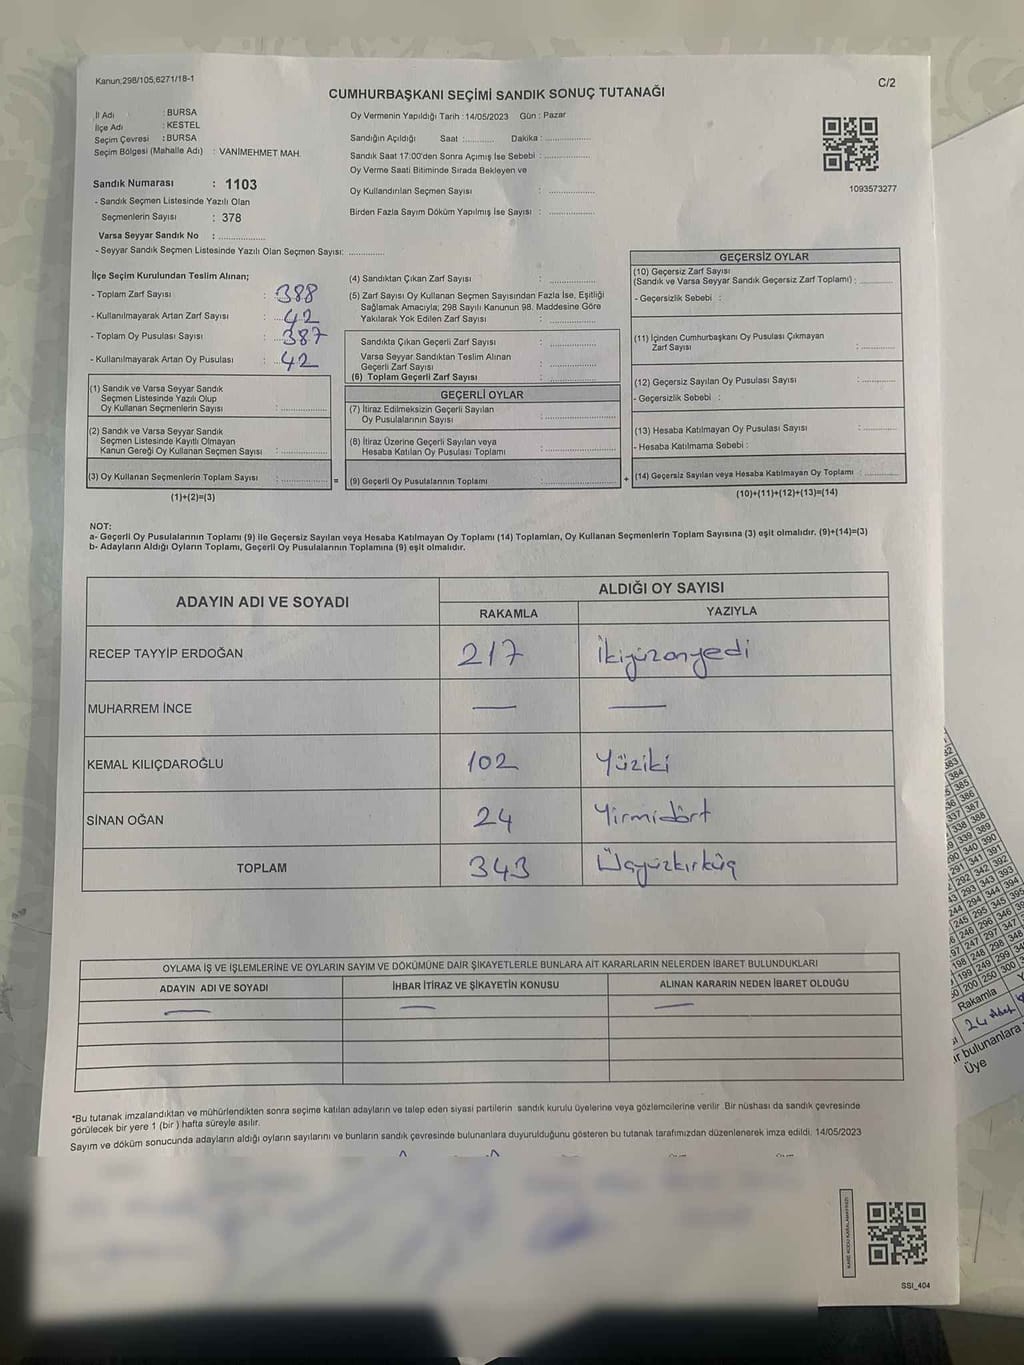 Kanun;298/105,6271/18-1
C/2
CUMHURBAŞKANI SEÇİMİ SANDIK SONUÇ TUTANAĞI
İl Adı : BURSA
İlçe Adı : KESTEL
Seçim Çevresi : BURSA
Seçim Bölgesi (Mahalle Adı) : VANİMEHMET MAH.
Sandık Numarası : 1103
- Sandık Seçmen Listesinde Yazılı Olan
Seçmenlerin Sayısı : 378
Varsa Seyyar Sandık No : ..................
- Seyyar Sandık Seçmen Listesinde Yazılı Olan Seçmen Sayısı: ..............
Oy Vermenin Yapıldığı Tarih : 14/05/2023 Gün : Pazar
Sandığın Açıldığı Saat :............ Dakika :................
Sandık Saat 17:00'den Sonra Açımış İse Sebebi : ................
Oy Verme Saati Bitiminde Sırada Bekleyen ve
Oy Kullandırılan Seçmen Sayısı : ................
Birden Fazla Sayım Döküm Yapılmış İse Sayısı : ................
1093573277
İlçe Seçim Kurulundan Teslim Alınan;
- Toplam Zarf Sayısı : 388
- Kullanılmayarak Artan Zarf Sayısı : 42
- Toplam Oy Pusulası Sayısı : 387
- Kullanılmayarak Artan Oy Pusulası : 42
(1) Sandık ve Varsa Seyyar Sandık
Seçmen Listesinde Yazılı Olup
Oy Kullanan Seçmenlerin Sayısı : ................
(2) Sandık ve Varsa Seyyar Sandık
Seçmen Listesinde Kayıtlı Olmayan
Kanun Gereği Oy Kullanan Seçmen Sayısı : ................
(3) Oy Kullanan Seçmenlerin Toplam Sayısı : ................ =
(1)+(2)=(3)
(4) Sandıktan Çıkan Zarf Sayısı : ................
(5) Zarf Sayısı Oy Kullanan Seçmen Sayısından Fazla İse, Eşitliği
Sağlamak Amacıyla; 298 Sayılı Kanunun 98. Maddesine Göre
Yakılarak Yok Edilen Zarf Sayısı : ................
Sandıkta Çıkan Geçerli Zarf Sayısı : ................
Varsa Seyyar Sandıktan Teslim Alınan
Geçerli Zarf Sayısı : ................
(6) Toplam Geçerli Zarf Sayısı : ................
GEÇERLİ OYLAR
(7) İtiraz Edilmeksizin Geçerli Sayılan
Oy Pusulalarının Sayısı : ................
(8) İtiraz Üzerine Geçerli Sayılan veya
Hesaba Katılan Oy Pusulası Toplamı : ................
(9) Geçerli Oy Pusulalarının Toplamı : ................ +
GEÇERSİZ OYLAR
(10) Geçersiz Zarf Sayısı
(Sandık ve Varsa Seyyar Sandık Geçersiz Zarf Toplamı) : ............
- Geçersizlik Sebebi :
(11) İçinden Cumhurbaşkanı Oy Pusulası Çıkmayan
Zarf Sayısı : ............
(12) Geçersiz Sayılan Oy Pusulası Sayısı : ............
- Geçersizlik Sebebi :
(13) Hesaba Katılmayan Oy Pusulası Sayısı : ............
- Hesaba Katılmama Sebebi :
(14) Geçersiz Sayılan veya Hesaba Katılmayan Oy Toplamı : ............
(10)+(11)+(12)+(13)=(14)
NOT:
a- Geçerli Oy Pusulalarının Toplamı (9) ile Geçersiz Sayılan veya Hesaba Katılmayan Oy Toplamı (14) Toplamları, Oy Kullanan Seçmenlerin Toplam Sayısına (3) eşit olmalıdır. (9)+(14)=(3)
b- Adayların Aldığı Oyların Toplamı, Geçerli Oy Pusulalarının Toplamına (9) eşit olmalıdır.
ADAYIN ADI VE SOYADI
ALDIĞI OY SAYISI
RAKAMLA YAZIYLA
RECEP TAYYİP ERDOĞAN 217 İkiyüzonyedi
MUHARREM İNCE — —
KEMAL KILIÇDAROĞLU 102 Yüziki
SİNAN OĞAN 24 Yirmidört
TOPLAM 343 Üçyüzkırküç
OYLAMA İŞ VE İŞLEMLERİNE VE OYLARIN SAYIM VE DÖKÜMÜNE DAİR ŞİKAYETLERLE BUNLARA AİT KARARLARIN NELERDEN İBARET BULUNDUKLARI
ADAYIN ADI VE SOYADI İHBAR İTİRAZ VE ŞİKAYETİN KONUSU ALINAN KARARIN NEDEN İBARET OLDUĞU
— — —
*Bu tutanak imzalandıktan ve mühürlendikten sonra seçime katılan adayların ve talep eden siyasi partilerin sandık kurulu üyelerine veya gözlemcilerine verilir. Bir nüshası da sandık çevresinde
görülecek bir yere 1 (bir) hafta süreyle asılır.
Sayım ve döküm sonucunda adayların aldığı oyların sayılarını ve bunların sandık çevresinde bulunanlara duyurulduğunu gösteren bu tutanak tarafımızdan düzenlenerek imza edildi. 14/05/2023
SSI_404
Rakamla
ır bulunanlara
Üye